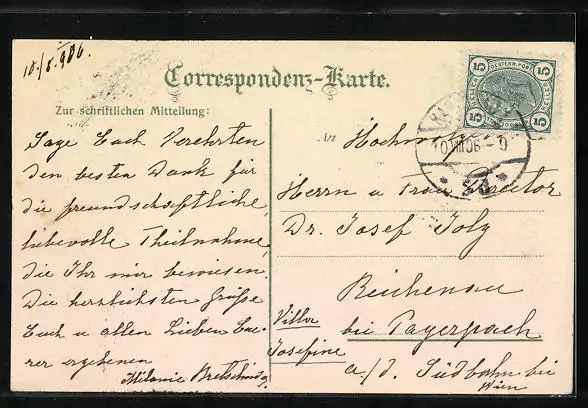 10./8. 906.
Correspondenz-Karte.
Zur schriftlichen Mitteilung:
Sage Euch Verehrten
den besten Dank für
die freundschaftliche,
liebevolle Theilnahme,
die Ihr mir bewiesen.
Die herzlichsten Grüße
Euch u allen Lieben Eue-
rer ergebenen
Milanie
An
Hochwohlg.
Herrn u Frau Director
Dr. Josef Joly
Reichenau
Villa
Josefine
bei Payerbach
a./d. Südbahn bei
Wien
5 OESTERR. POST 5
HELLER HELLER
5 5
10 VIII 06 - 9